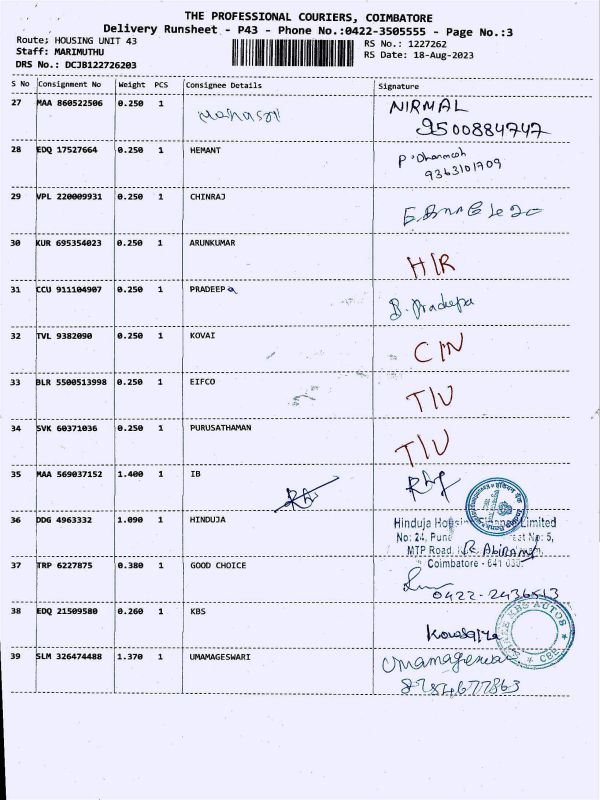 THE PROFESSIONAL COURIERS, COIMBATORE
Delivery Runsheet - P43 - Phone No.:0422-3505555 - Page No.:3
Route: HOUSING UNIT 43
Staff: MARIMUTHU
DRS No.: DCJB122726203
RS No.: 1227262
RS Date: 18-Aug-2023
S No Consignment No Weight PCS Consignee Details Signature
27 MAA 860522506 0.250 1 NIRMAL
9500884747
28 EDQ 17527664 0.250 1 HEMANT
9363101709
29 VPL 220009931 0.250 1 CHINRAJ
30 KUR 695354023 0.250 1 ARUNKUMAR H/R
31 CCU 911104907 0.250 1 PRADEEPa B. Pradeepa
32 TVL 9382090 0.250 1 KOVAI C/N
33 BLR 5500513998 0.250 1 EIFCO T/U
34 SVK 60371036 0.250 1 PURUSATHAMAN T/U
35 MAA 569037152 1.400 1 IB
36 DDG 4963332 1.090 1 HINDUJA Hinduja Housing Finance Limited
No: 24, Pune
MTP Road,
Coimbatore - 641
37 TRP 6227875 0.380 1 GOOD CHOICE
0422-2436513
38 EDQ 21509580 0.260 1 KBS Kowsalya
KBS AUTOS
CBE
39 SLM 326474488 1.370 1 UMAMAGESWARI Umamageswari
8754677863